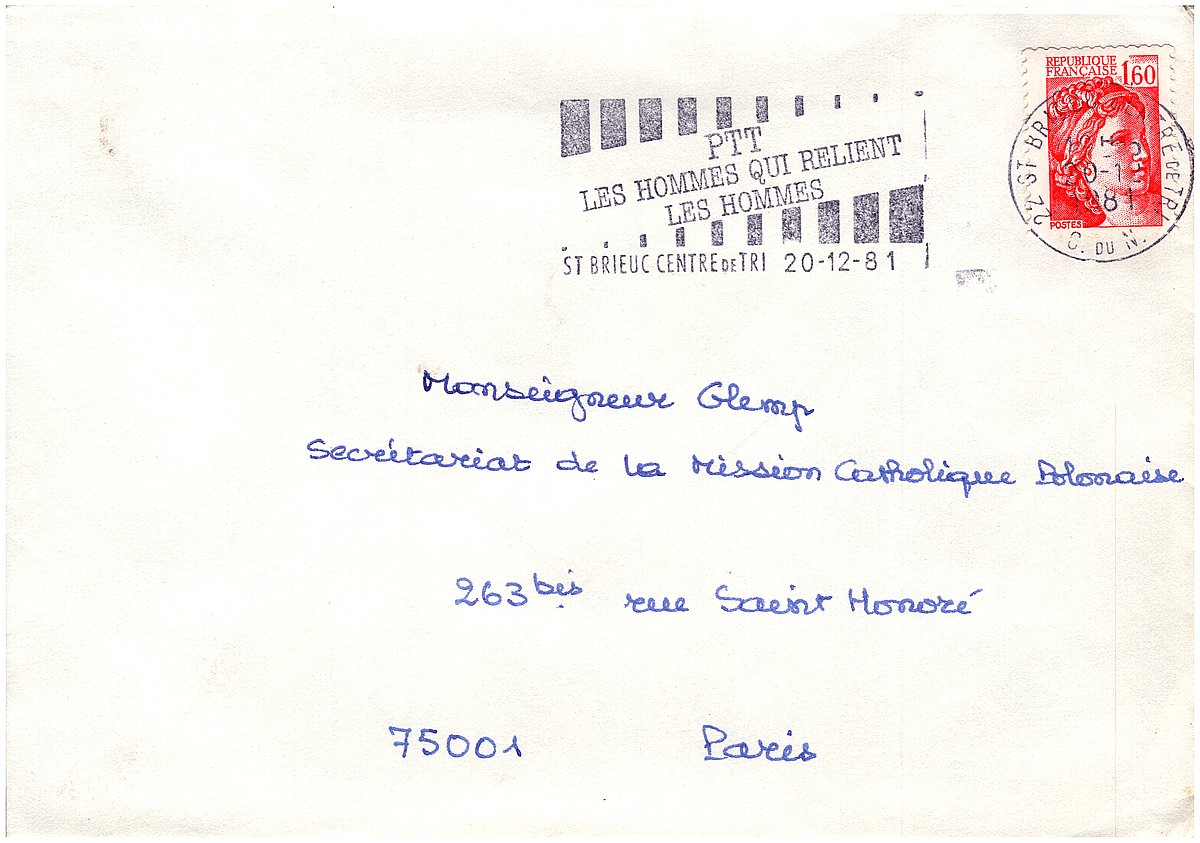 REPUBLIQUE
FRANÇAISE 1,60
POSTES
22 ST BRIEUC CENTRE DE TRI
20-12
1981
C. DU N.
PTT
LES HOMMES QUI RELIENT
LES HOMMES
ST BRIEUC CENTRE DE TRI 20-12-81
Monseigneur Glemp
Secrétariat de la Mission Catholique Polonaise
263 bis rue Saint Honoré
75001 Paris